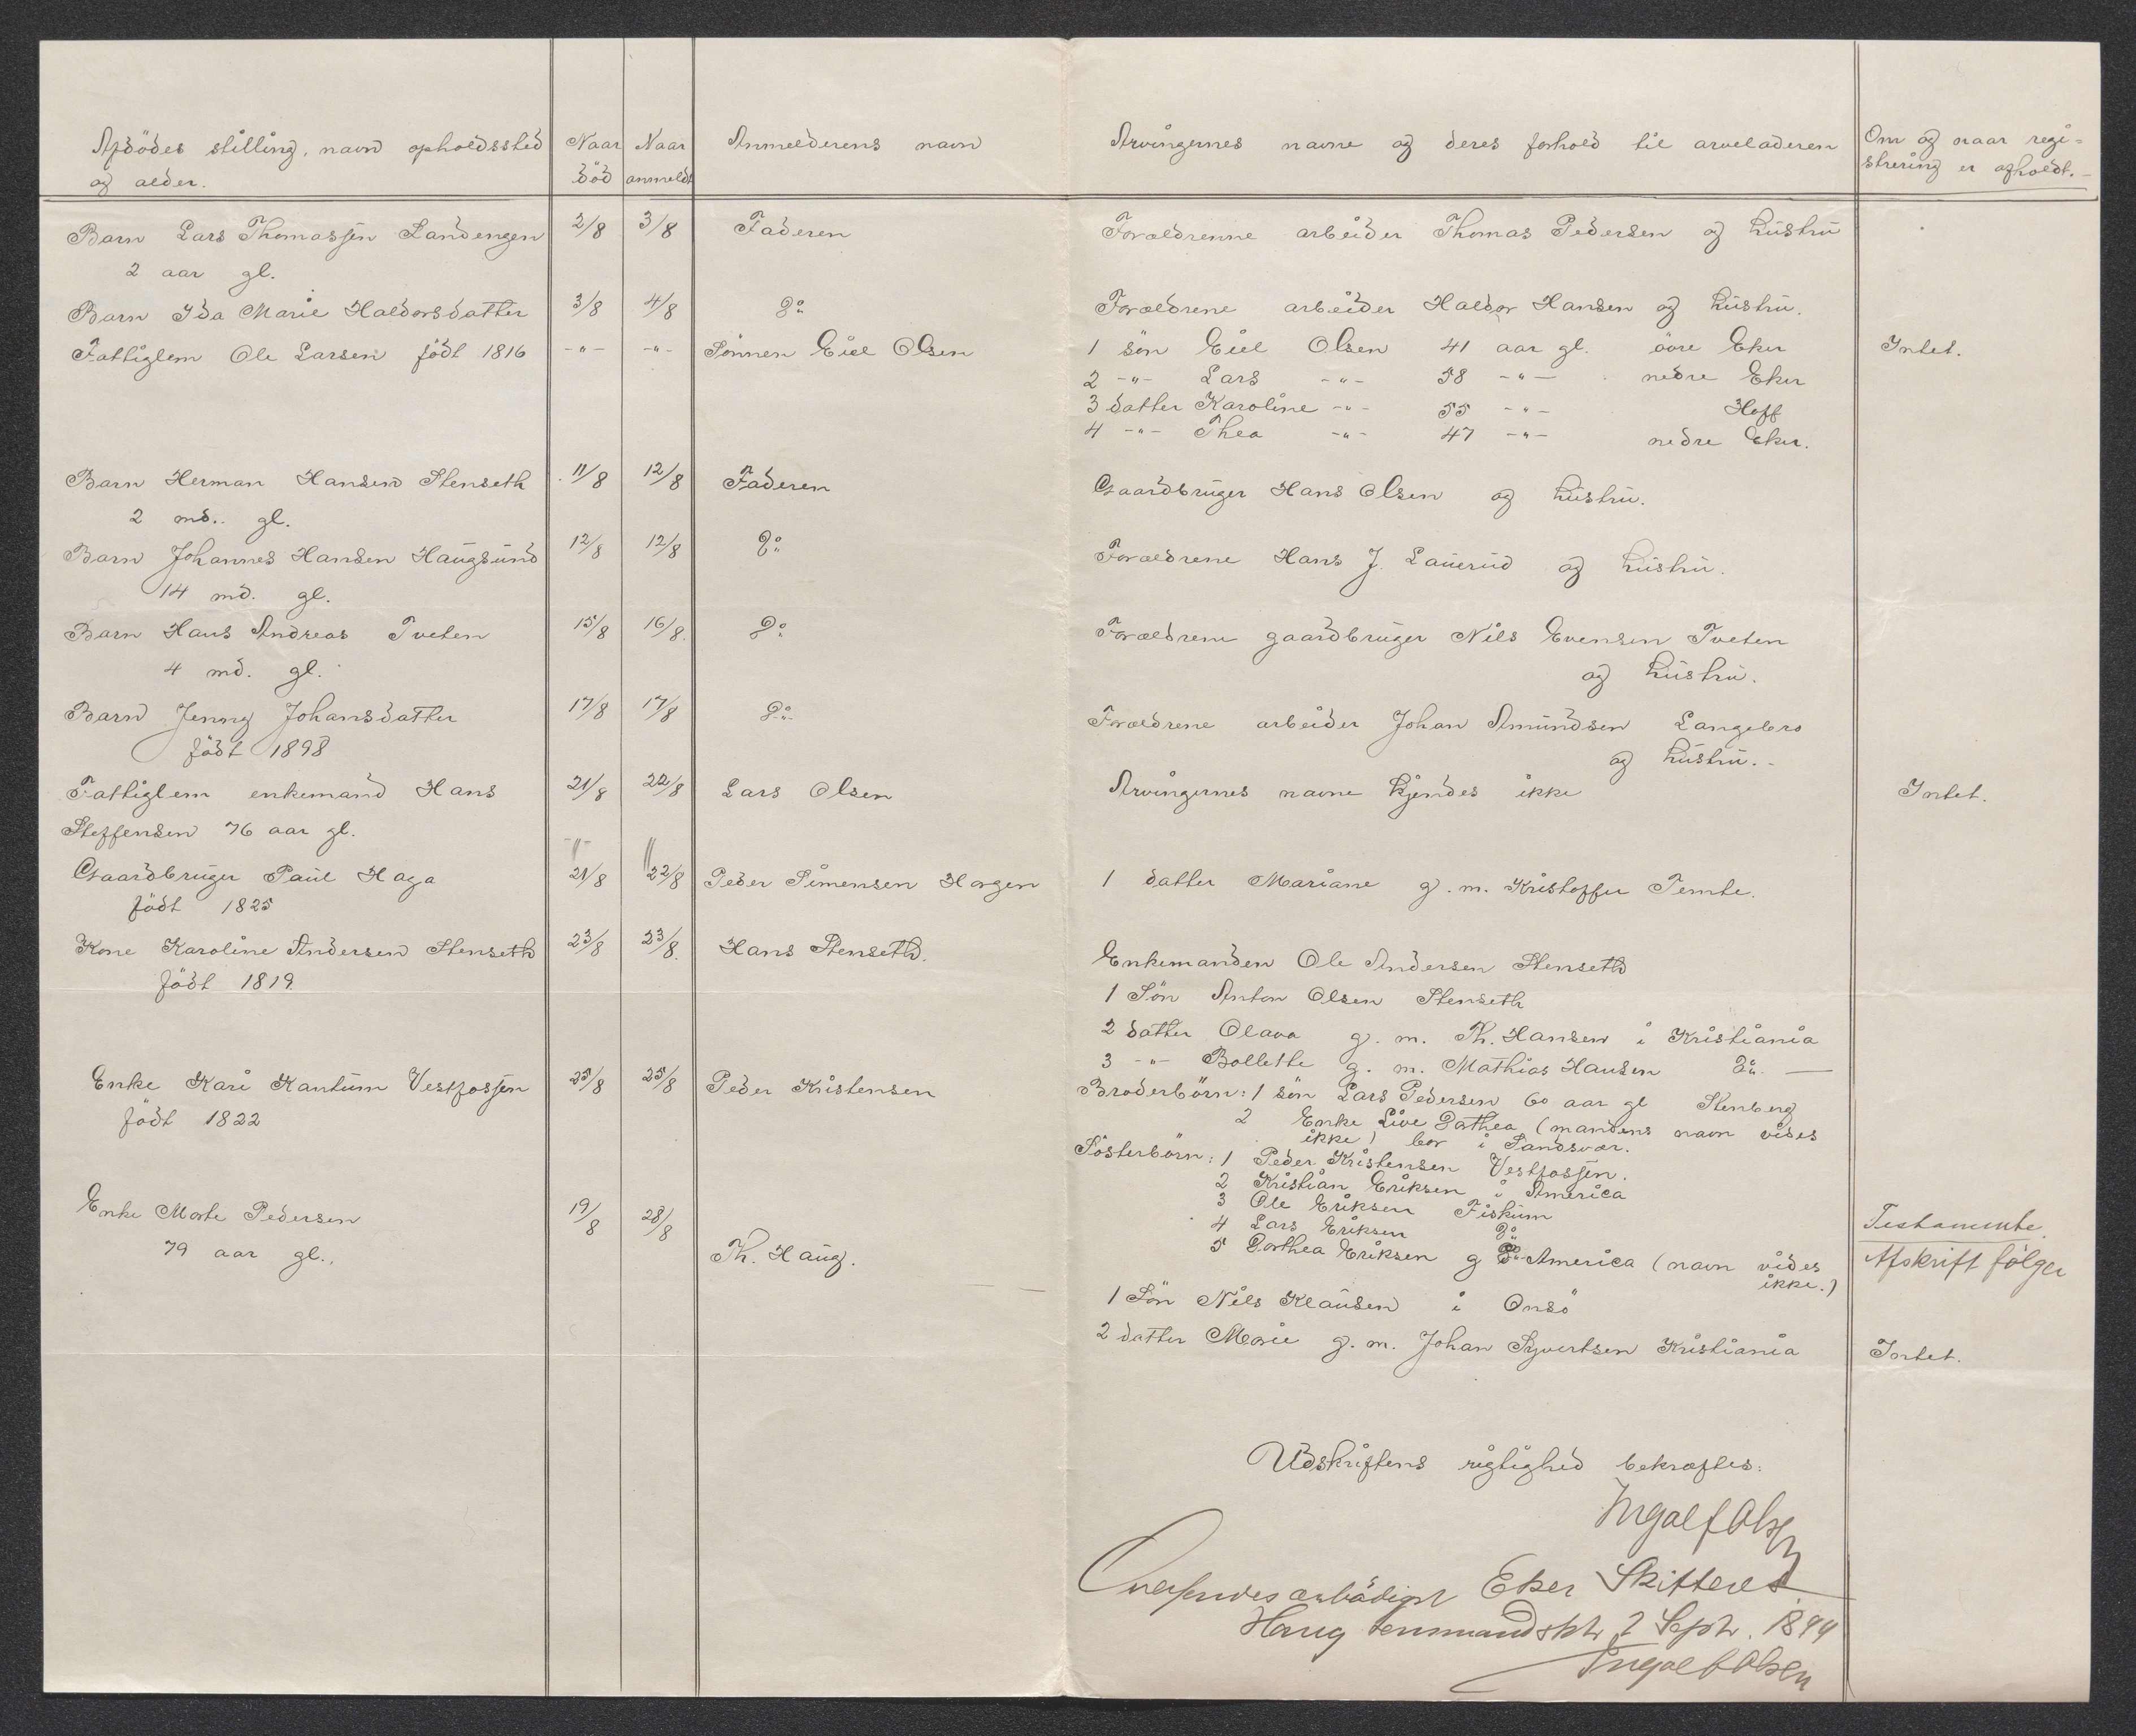 Afdödes stilling, navn opholdssted
og alder.
Naar död
Naar anmeldt
Anmelderens navn
Arvingernes navne og deres forhold til arveladeren
Om og naar regi=
strering er afholdt.
Barn Lars Thomassen Sandengen 2/8 3/8 Faderen Forældrenne arbeider Thomas Pedersen og hustru
2 aar gl.
Barn Ida Marie Haldorsdatter 3/8 4/8 Do Forældrene arbeider Haldor Hansen og hustru.
Fattiglem Ole Larsen födt 1816 -"- -"- Sönnen Eiel Olsen 1 sön Eiel Olsen 41 aar gl. övre Eker Intet.
2 -"- Lars -"- 38 -"- nedre Eker
3 datter Karoline -"- 55 -"- Hoff
4 -"- Thea -"- 47 -"- nedre Eker.
Barn Herman Hansen Stenseth 11/8 12/8 Faderen Gaardbruger Hans Olsen og hustru.
2 md. gl.
Barn Johannes Hansen Haugsund 12/8 12/8 Do Forældrene Hans J. Lauerud og hustru.
14 md. gl.
Barn Hans Andreas Tveten 15/8 16/8 Do Forældrene gaardbruger Nils Evensen Tveten
4 md. gl. og hustru.
Barn Jenny Johansdatter 17/8 17/8 Do Forældrene arbeider Johan Amundsen Langebro
födt 1898 og hustru.
Fattiglem enkemand Hans 21/8 22/8 Lars Olsen Arvingernes navne kjendes ikke Intet.
Steffensen 76 aar gl.
Gaardbruger Paul Haga 21/8 22/8 Peder Simensen Horgen 1 datter Mariane g. m. Kristoffer Temte.
födt 1825
Kone Karoline Andersen Stenseth 23/8 23/8 Hans Stenseth. Enkemanden Ole Andersen Stenseth
födt 1819
1 Sön Anton Olsen Stenseth
2 datter Olava g. m. Th. Hansen i Kristiania
3 -"- Bollette g. m. Mathias Hansen Do. —
Enke Kari Kantum Vestfossen 25/8 25/8 Peder Kristensen Broderbörn: 1 sön Lars Pedersen 60 aar gl Stenberg
födt 1822
2 Enke Live Dorthea (mandens navn vides
ikke) bor i Sandsvær.
Sösterbörn: 1 Peder Kristensen Vestfossen.
2 Kristian Eriksen i America
3 Ole Eriksen Fiskum
4 Lars Eriksen Do
5 Dorthea Eriksen g America (navn vides
ikke.)
Testamente
Afskrift følger
Enke Marte Pedersen 19/8 28/8
79 aar gl., Th. Haug.
1 Sön Nils Klausen i Onsö
2 datter Marie g. m. Johan Syvertsen Kristiania Intet.
Udskriftens rigtighed bekræftes:
Ingolf Olsen
Oversendes ærbödigst Eker Skifteret
Haug Lensmandsktr 2 Septr. 1899
Ingolf Olsen